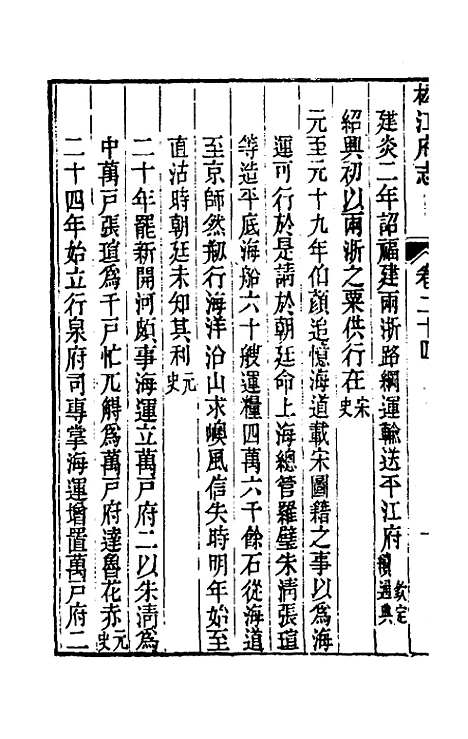 松江府志 卷二十四
建炎二年詔福建兩浙路綱運輸送平江府欽定續通典
紹興初以兩浙之粟供行在宋史
元至元十九年伯顏追憶海道載宋圖籍之事以爲海
運可行於是請於朝廷命上海總管羅璧朱淸張瑄
等造平底海船六十艘運糧四萬六千餘石從海道
至京師然剏行海洋沿山求嶼風信失時明年始至
直沽時朝廷未知其利元史
二十年罷新開河頗事海運立萬戸府二以朱淸爲
中萬戸張瑄爲千戸忙兀䚟爲萬戸府達魯花赤元史
二十四年始立行泉府司專掌海運增置萬戸府二